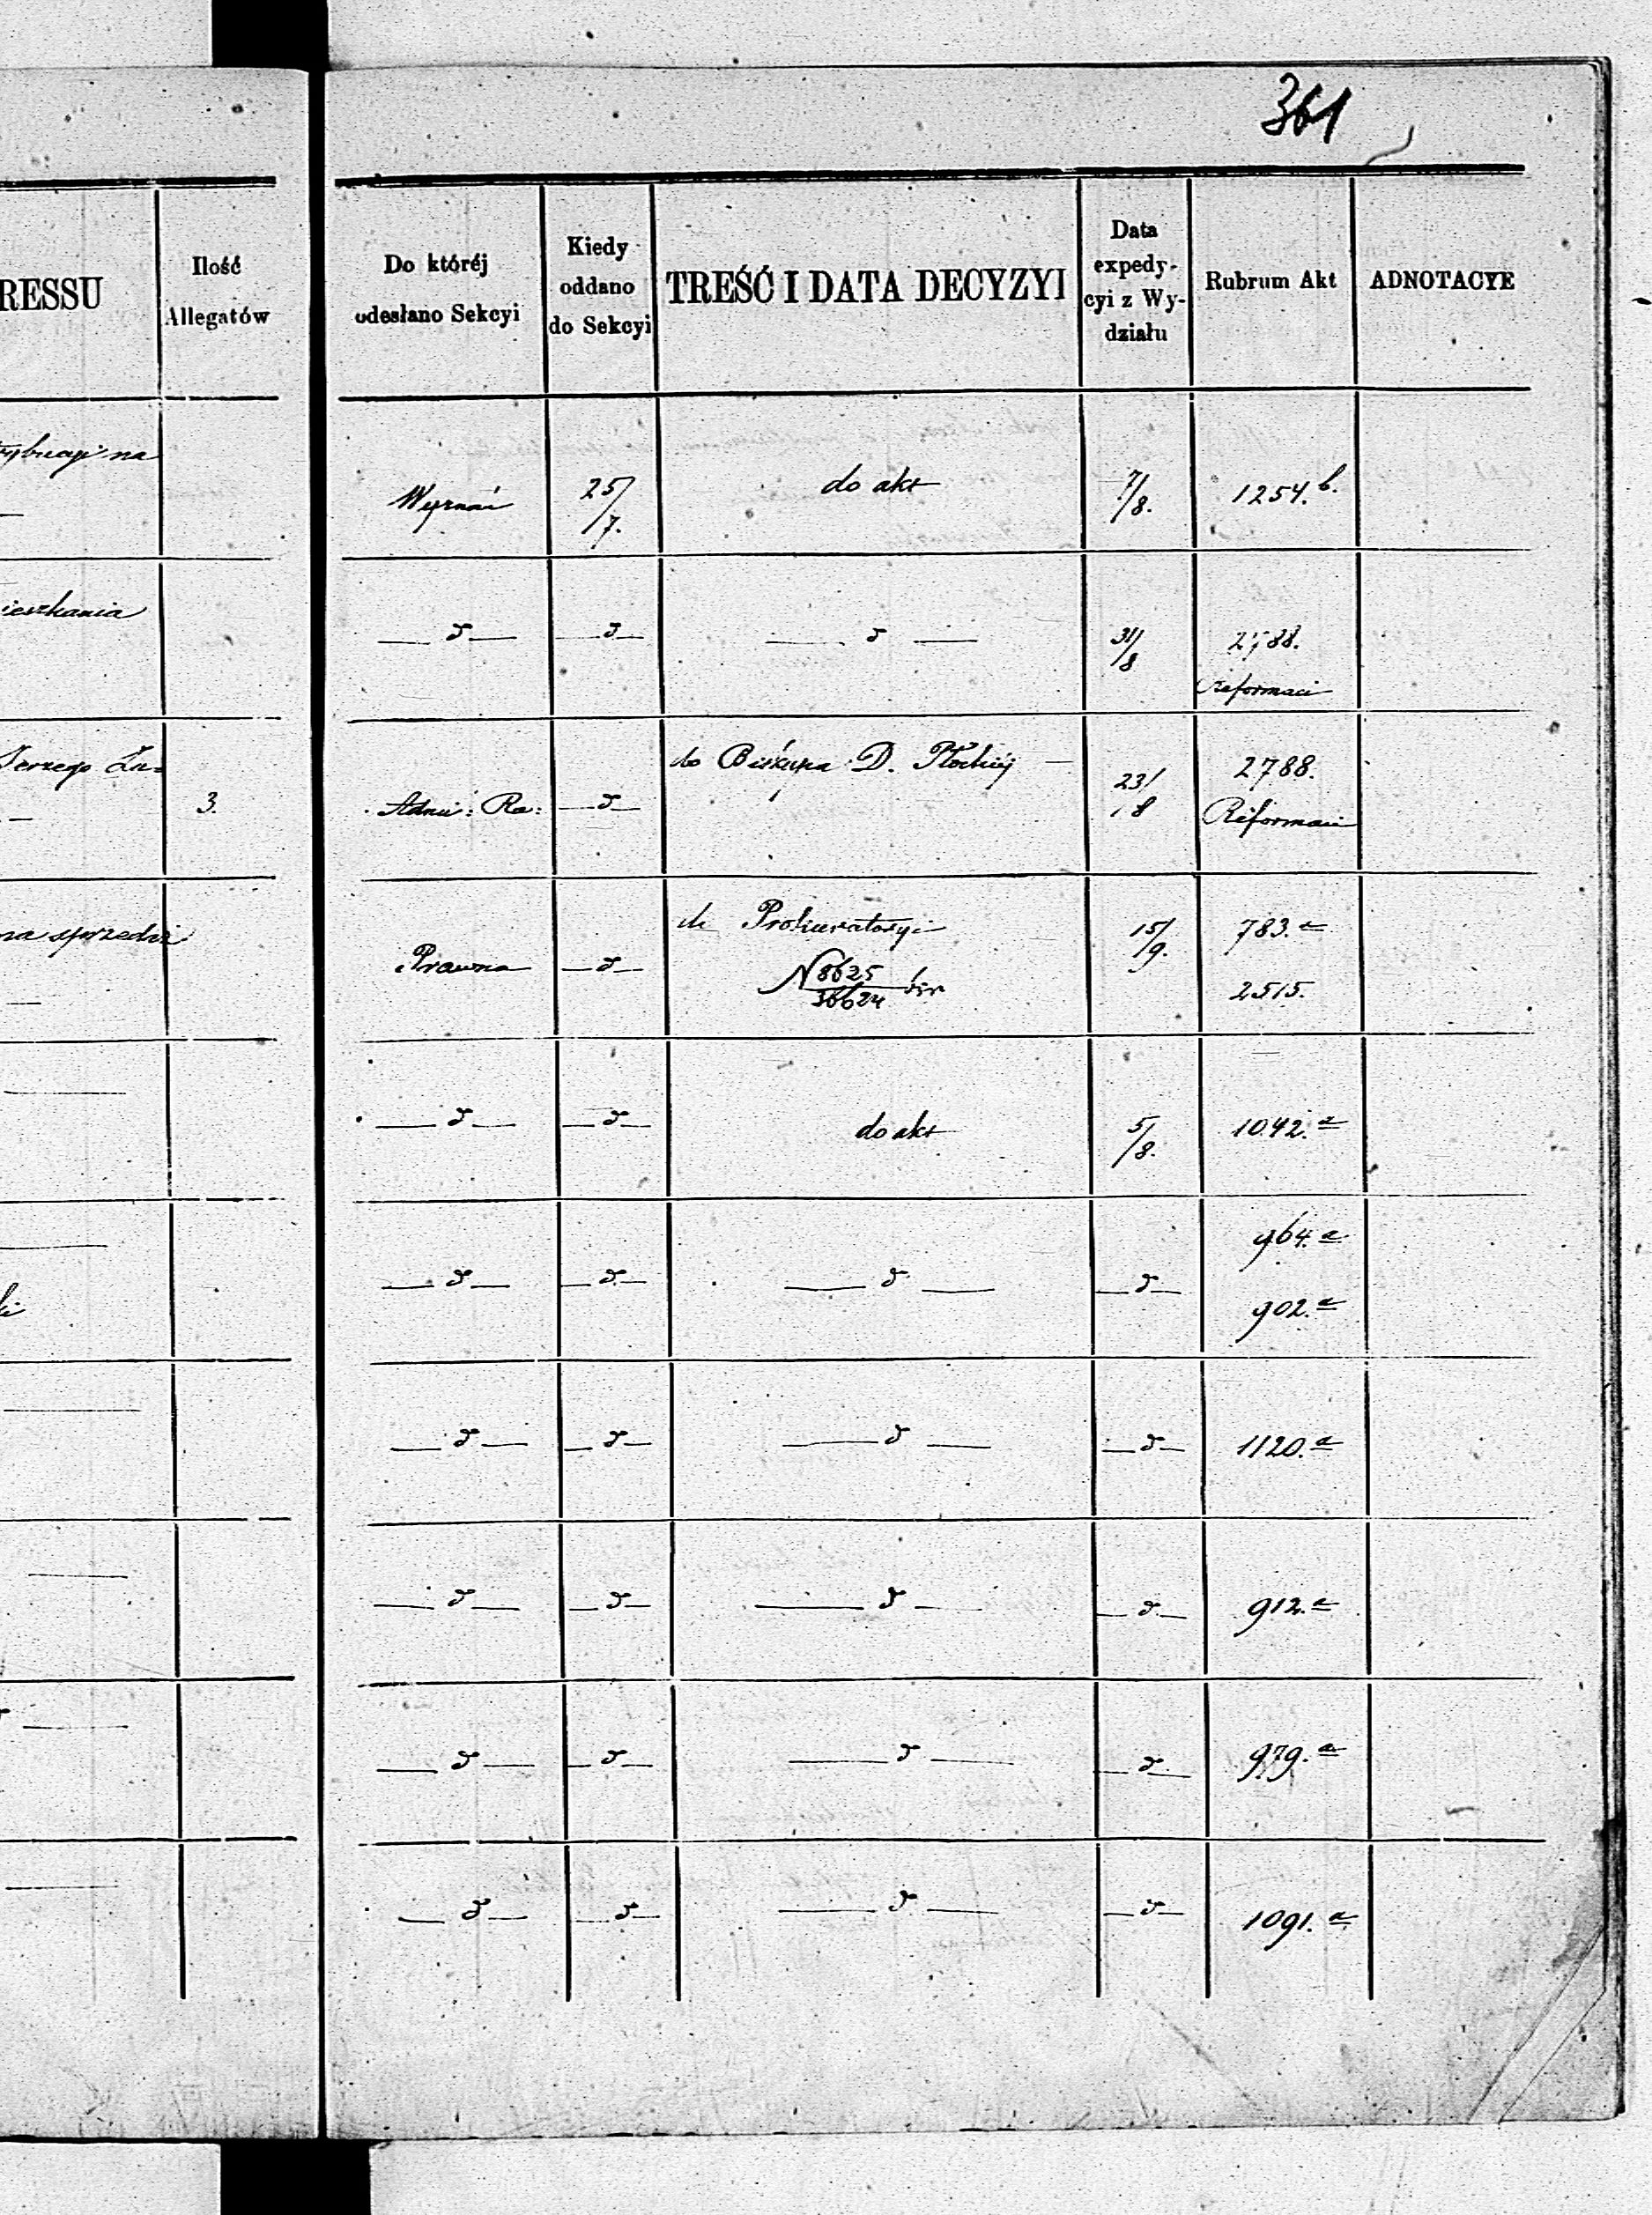 361
RESSU
Ilość
Allegatów
Do któréj
odesłano Sekcyi
Kiedy
oddano
do Sekcyi
TREŚĆ I DATA DECYZYI
Data
expedy-
cyi z Wy-
działu
Rubrum Akt
ADNOTACYE
na
Wyznań
25/7.
do akt
7/8.
1254. b.
ieszkania
— d —
— d —
— d —
31/8
2788.
Reformaci
Jerzego
3.
Admi: Ra:
— d —
do Biskupa D. Płockiej —
23/8
2788.
Reformaci
na sprzedaż
Prawna
— d —
do Prokuratoryi
N 8625/36624
15/9.
783. a
2515.
— d —
— d —
do akt
5/8.
1042. a
— d —
— d —
— d —
— d —
964. a
902. a
— d —
— d —
— d —
— d —
1120. a
— d —
— d —
— d —
— d —
912. a
— d —
— d —
— d —
— d —
979. a
— d —
— d —
— d —
— d —
1091. a